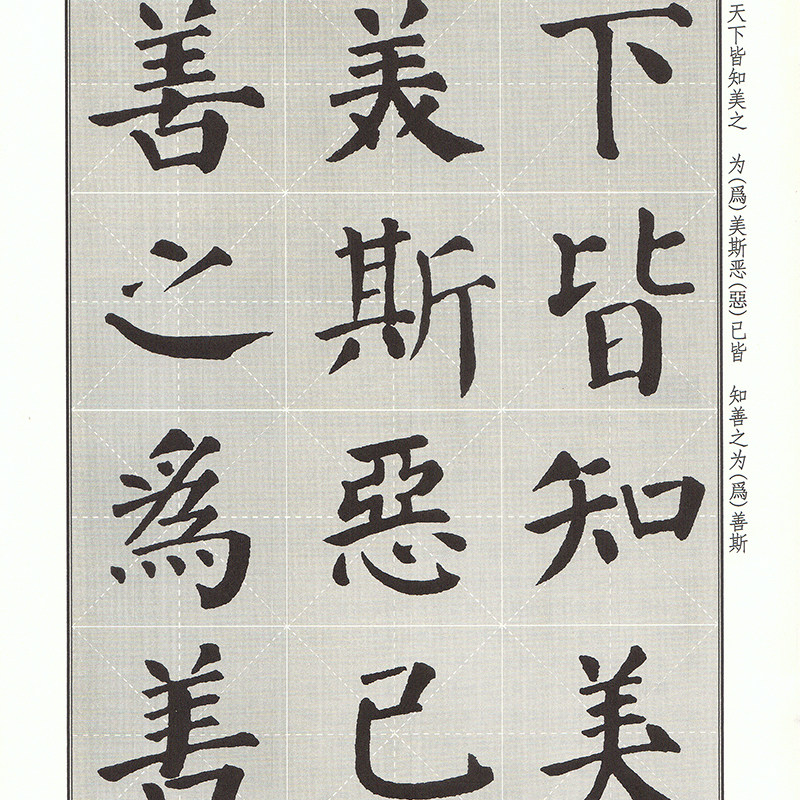 下皆知美
美斯惡已
善之爲善
天下皆知美之 为(爲)美斯恶(惡)已皆 知善之为(爲)善斯